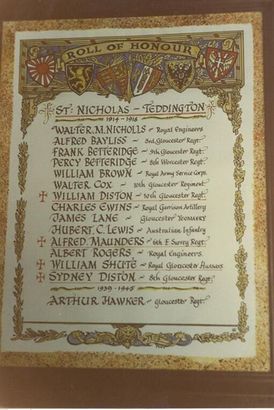 ROLL OF HONOUR
ST. NICHOLAS - TEDDINGTON
1914-1918
WALTER. M. NICHOLLS - Royal Engineers
ALFRED BAYLISS - 3rd. Gloucester Regt.
FRANK BETTERIDGE - 9th Gloucester Regt.
PERCY BETTERIDGE - 8th Worcester Regt.
WILLIAM BROWN - Royal Army Service Corps.
WALTER COX - 10th Gloucester Regiment
WILLIAM DISTON - 10th Gloucester Regt.
CHARLES EWINS - Royal Garrison Artillery
JAMES LANE - Gloucester Yeomanry
HUBERT. C. LEWIS - Australian Infantry
ALFRED MAUNDERS - 6th E. Surrey Regt.
ALBERT ROGERS - Royal Engineers.
WILLIAM SHUTE - Royal Gloucester Hussars
SYDNEY DISTON - 8th Gloucester Regt.
1939-1945
ARTHUR HAWKER - Gloucester Regt.